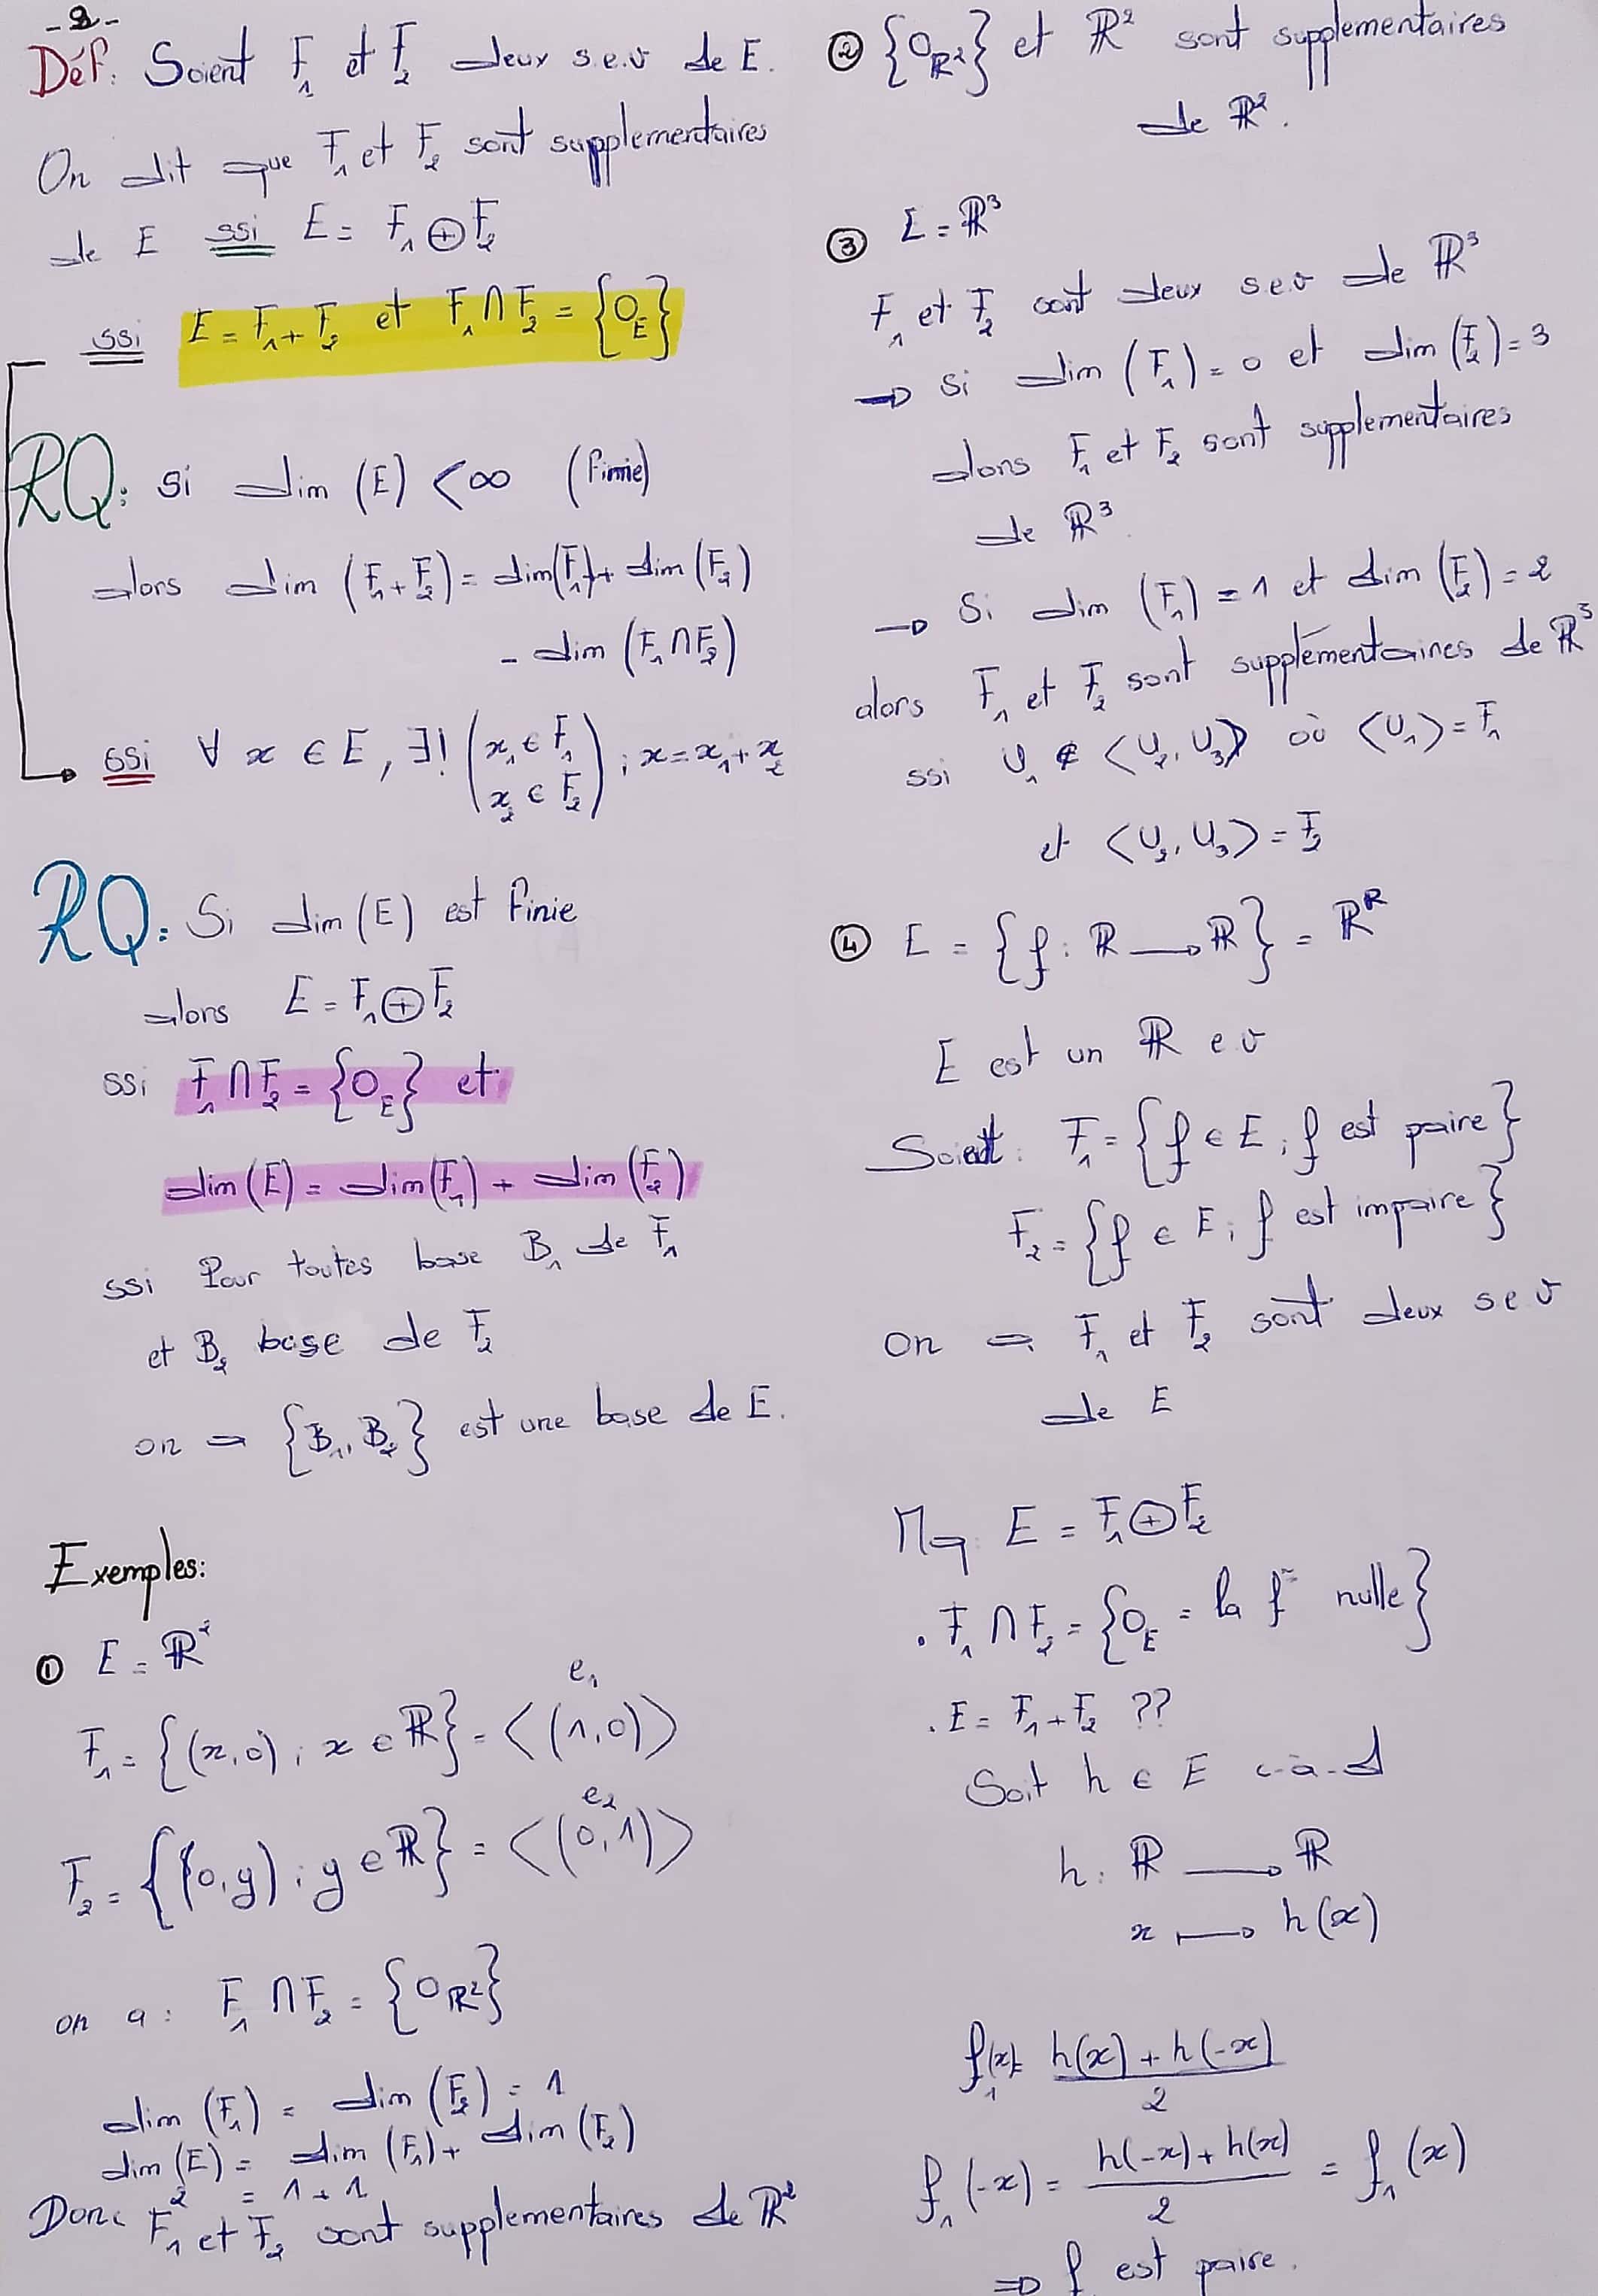 -2-
Déf: Soient F₁ et F₂ deux s.e.v de E.
On dit que F₁ et F₂ sont supplementaires
de E ssi E = F₁ ⊕ F₂
ssi E = F₁ + F₂ et F₁ ∩ F₂ = {0_E}
RQ: Si dim (E) < ∞ (finie)
alors dim (F₁ + F₂) = dim(F₁) + dim (F₂)
- dim (F₁ ∩ F₂)
→ ssi ∀ x ∈ E, ∃! (x₁ ∈ F₁
x₂ ∈ F₂) ; x = x₁ + x₂
RQ: Si dim (E) est finie
alors E = F₁ ⊕ F₂
ssi F₁ ∩ F₂ = {0_E} et
dim (E) = dim (F₁) + dim (F₂)
ssi Pour toutes base B₁ de F₁
et B₂ base de F₂
on a {B₁, B₂} est une base de E.
Exemples:
① E = ℝ²
F₁ = {(x,0) ; x ∈ ℝ} = <(1,0)> e₁
F₂ = {(0,y) ; y ∈ ℝ} = <(0,1)> e₂
on a : F₁ ∩ F₂ = {0_ℝ²}
dim (F₁) = dim (F₂) = 1
dim (E) = dim (F₁) + dim (F₂)
2 = 1 + 1
Donc F₁ et F₂ sont supplementaires de ℝ²
② {0_ℝ²} et ℝ² sont supplementaires
de ℝ².
③ E = ℝ³
F₁ et F₂ sont deux s e.v de ℝ³
→ Si dim (F₁) = 0 et dim (F₂) = 3
alors F₁ et F₂ sont supplementaires
de ℝ³.
→ Si dim (F₁) = 1 et dim (F₂) = 2
alors F₁ et F₂ sont supplémentaires de ℝ³
ssi U₁ ∉ <U₂, U₃> où <U₁> = F₁
et <U₂, U₃> = F₂
④ E = {f : ℝ → ℝ} = ℝ^ℝ
E est un ℝ e v
Soient : F₁ = {f ∈ E ; f est paire}
F₂ = {f ∈ E ; f est impaire}
on a F₁ et F₂ sont deux s e v
de E
Mq : E = F₁ ⊕ F₂
. F₁ ∩ F₂ = {0_E = la f° nulle}
. E = F₁ + F₂ ??
Soit h ∈ E c-à-d
h : ℝ → ℝ
x ↦ h(x)
f₁(x) = (h(x) + h(-x))/2
f₁(-x) = (h(-x) + h(x))/2 = f₁(x)
⇒ f est paire.